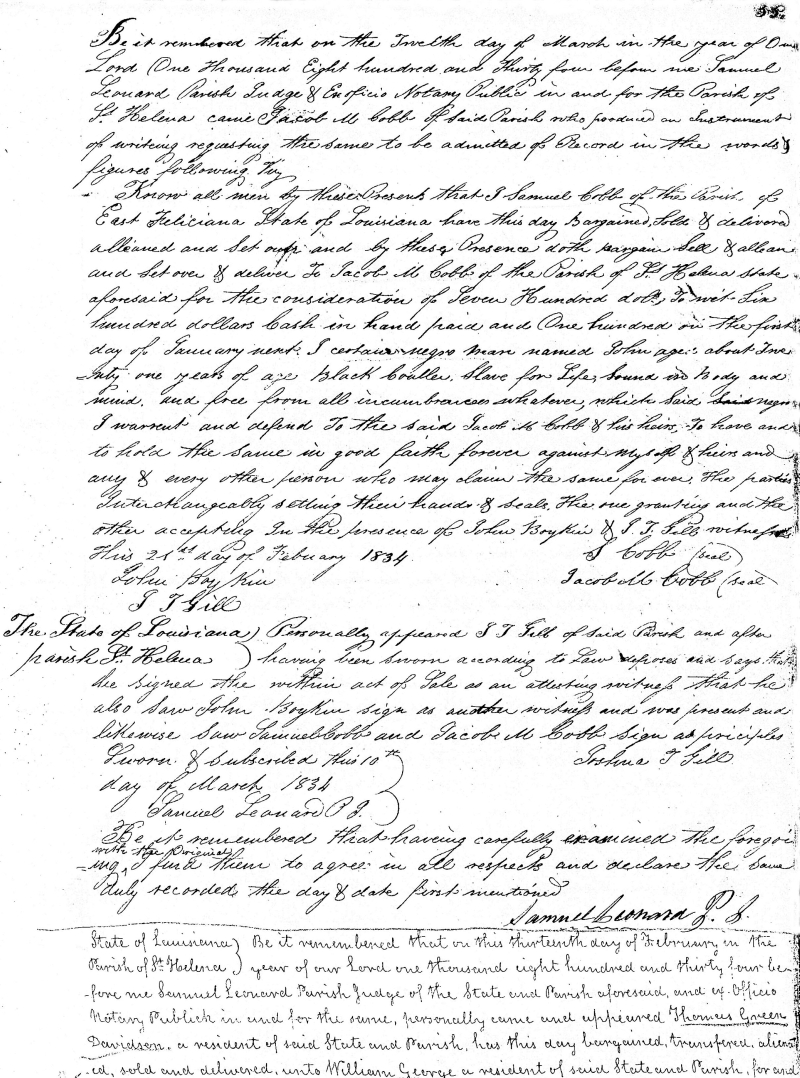 Be it remembered that on the Twelfth day of March in the year of Our
Lord One Thousand Eight hundred and Thirty four before me Samuel
Leonard Parish Judge & Exofficio Notary Public in and for the Parish of
St Helena came Jacob M Cobb of Said Parish who produced an Instrument
of writing requesting the same to be admitted of Record in the words &
figures following Viz
Know all men by these Presents that I Samuel Cobb of the Parish of
East Feliciana State of Louisiana have this day Bargained, Sold & delivered
alleaned and Set over and by these Presence doth bargain Sell & allean
and Set over & deliver To Jacob M Cobb of the Parish of St Helena state
aforesaid for the consideration of Seven Hundred dols, To wit Six
hundred dollars Cash in hand paid and One hundred on the first
day of January next. I certain negro man named John age about Twe
=nty one years of age Black Couller, Slave for Life, Sound in Body and
mind, and free from all incumbrances whatever, which Said Said negro
I warrent and defend To the said Jacob M Cobb & his heirs, To have and
to hold the same in good faith forever against myself & heirs and
any & every other person who may claim the same for ever, The parties
Interchangeably setting their hands & seals, The one granting and the
other accepting In the presence of John Boykin & J. T. Gill witnesses
This 21st day of Febuary 1834 S Cobb (seal)
John Boykin Jacob M Cobb (seal
J T Gill
The State of Louisiana ) Personally appeared J T Gill of said Parish and after
parish St Helena ) having been sworn according to Law deposes and says that
he signed the within act of Sale as an attesting witness that he
also saw John Boykin sign as another witness and was present and
likewise Saw Samuel Cobb and Jacob M Cobb Sign as priciples
Sworn & Subscribed this 10th Joshua T Gill
day of March 1834
Samuel Leonard P J.
Be it remembered that having carefully examined the foregoi
=ing with the Original I find them to agree in all respects and declare the same
duly recorded the day & date first mentioned
Samuel Leonard P. J.
State of Louisiana ) Be it remembered that on this thirteenth day of February in the
Parish of St Helena ) year of our Lord one thousand eight hundred and thirty four be-
-fore me Samuel Leonard Parish Judge of the State and Parish aforesaid, and ex-Officio
Notary Publick in and for the same, personally came and appeared Thomas Green
Davidson, a resident of said State and Parish, has this day bargained, transfered, alien
-ed, sold and delivered, unto William George a resident of said State and Parish, for and